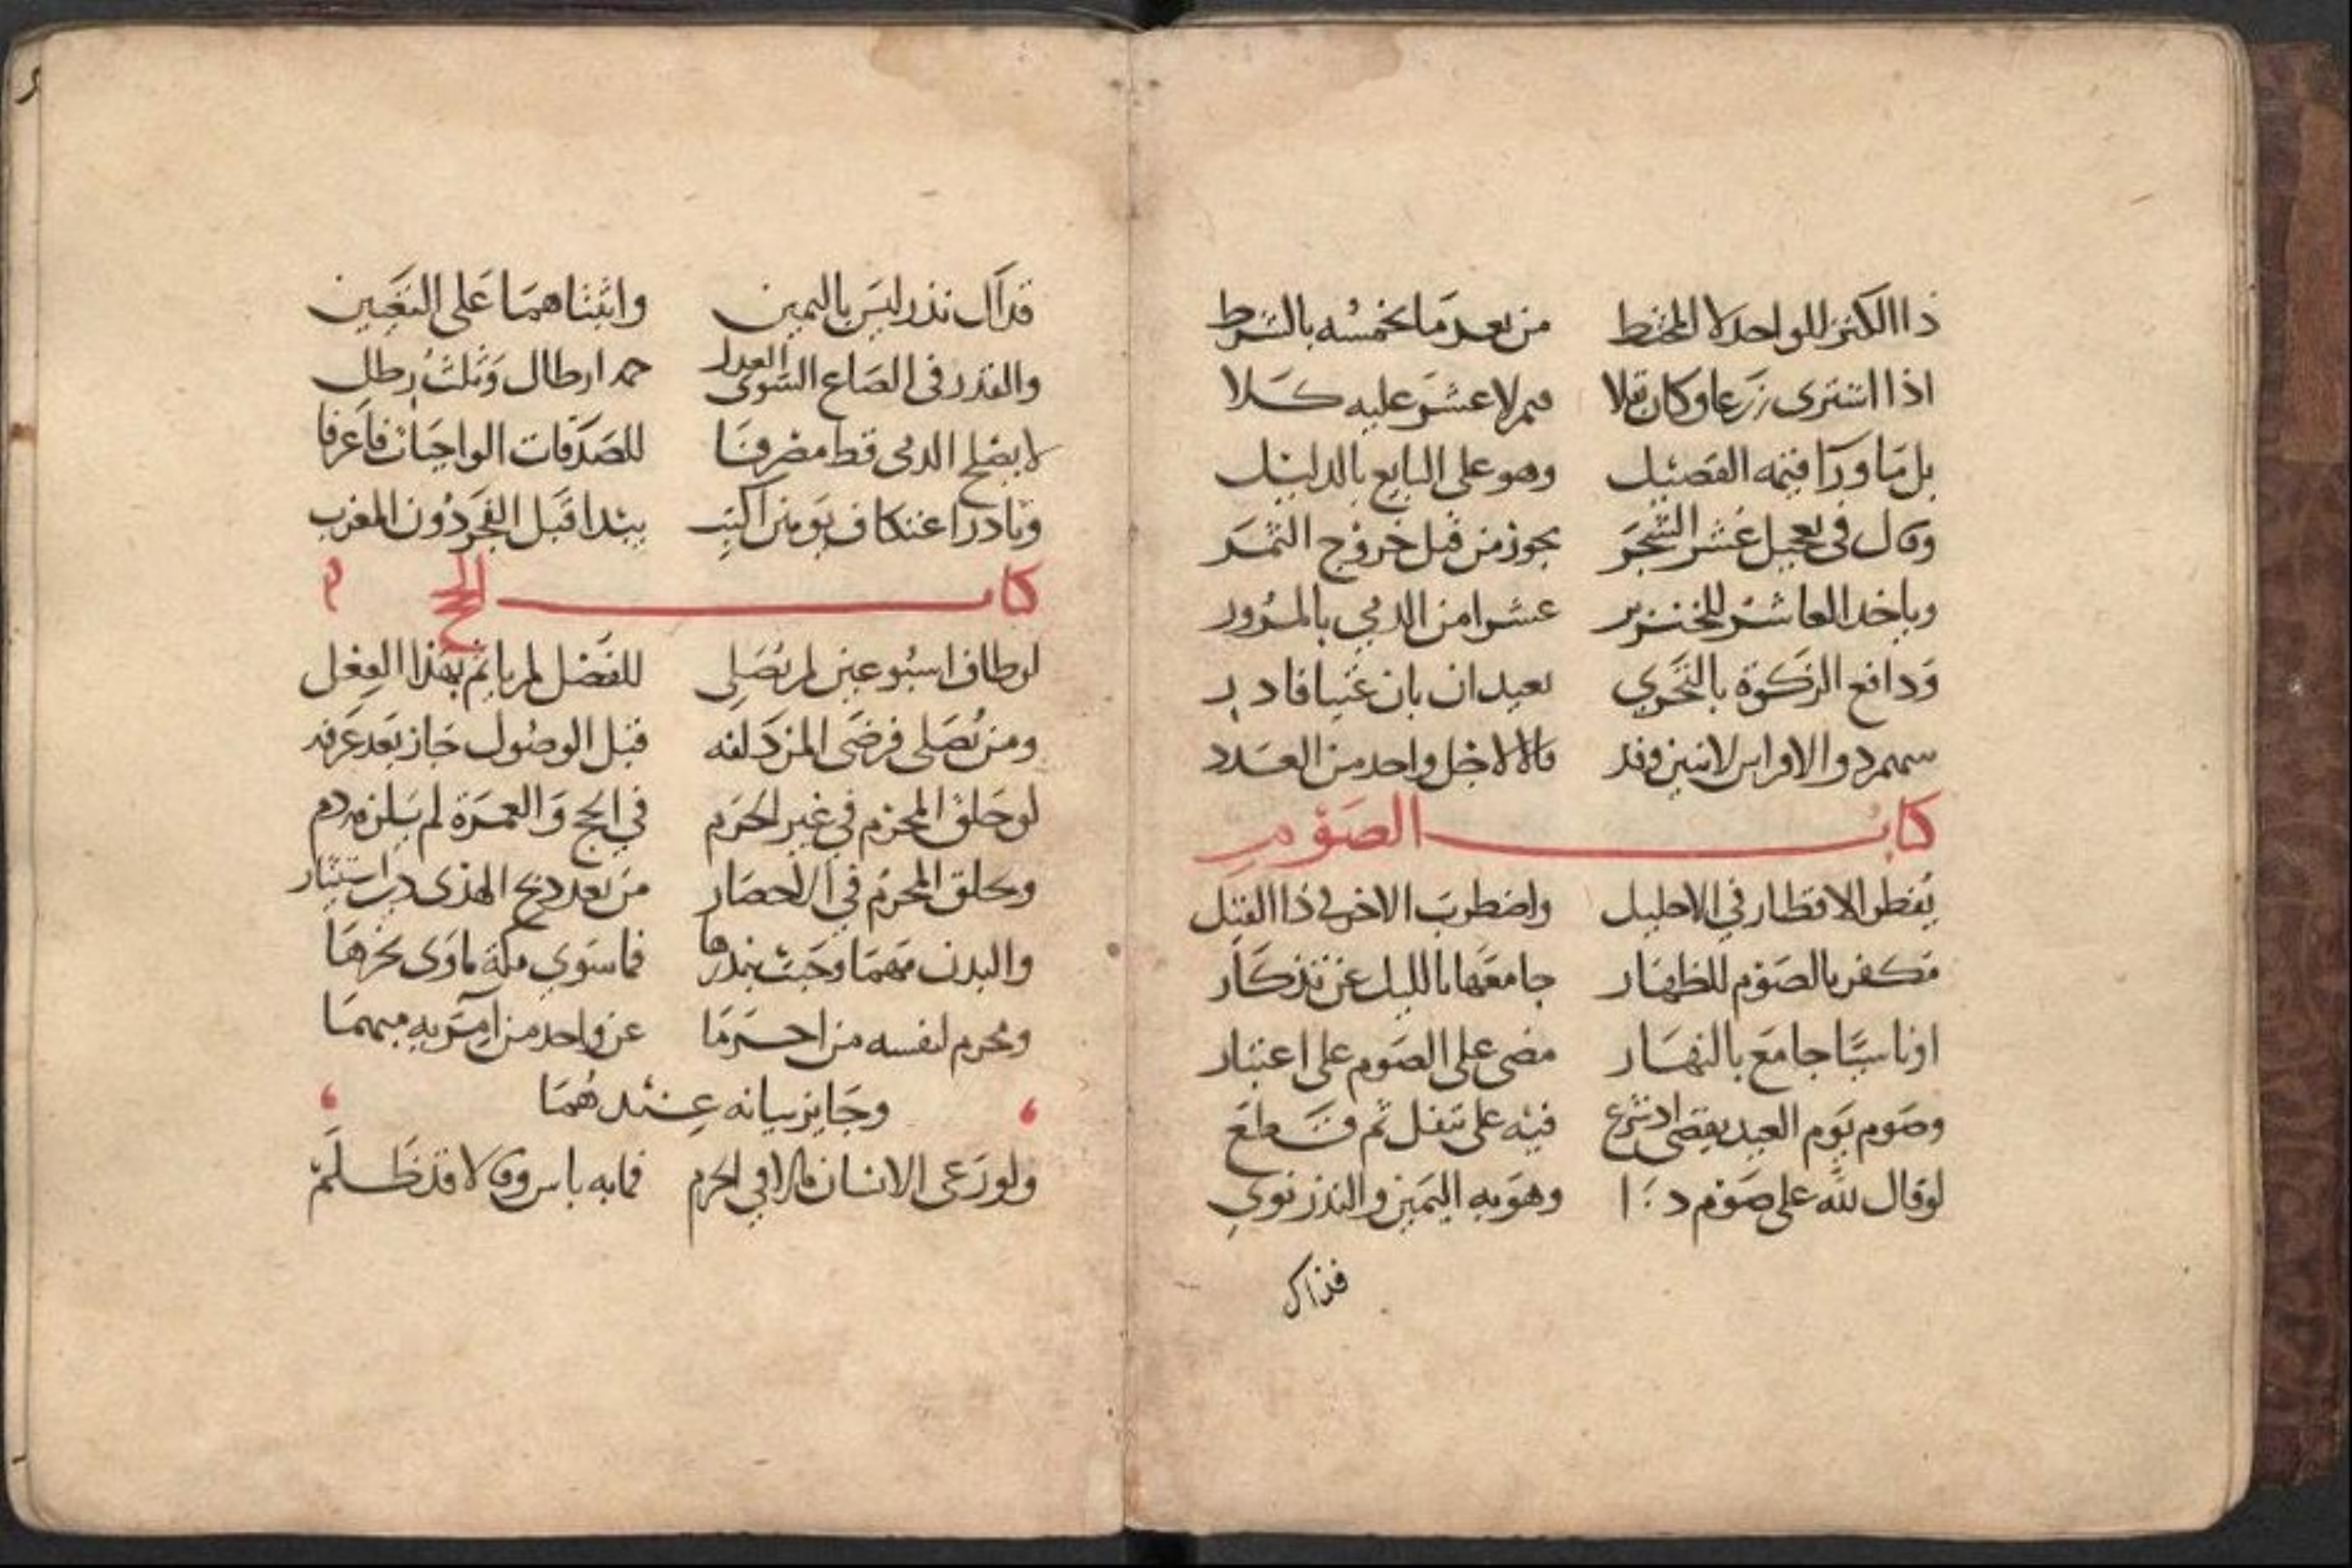 ذا الكنز للواحد لا المختط من بعد ما يخمسه بالشرط
اذا اشترى زرعا وكان بقلا عشر عليه كلا
بل ما ورا قيمه الفصيل وهو على البايع بالدليل
وقال في تعجيل عشر الشجر يجوز من قبل خروج الثمر
وياخد العاشر للخنزير عشرا من الدمي بالمرور
ودافع الزكوة بالتحري يعيد ان بان غنيا فادر
الافراس لاثنين وقد قالا لاجل واحد من العدد
كتاب الصوم
يفطر الاقطار في الاحليل واضطرب الاخر في ذا القيل
مكفر بالصوم للظهار جامعها بالليل عن تذكار
او ناسيا جامع بالنهار مضى على الصوم على اعتبار
وصوم يوم العيد يقضى اد شرع فيه على تنفل ثم قطع
لو قال لله على صوم د ا وهو به اليمين والندر نوي
فذاك
فذاك نذر ليس باليمين واثبتاهما على التعيين
والقدر في الصاع السوى العدل ارطال وثلث رطل
لا يصلح الدمى قط مصرفا للصدقات الواجبات فاعرفا
ونادر اعتكاف يومين اكتب يبتدا قبل الفجر دون المغرب
كتاب الحج
لو طاف اسبوعين لم يصلي للفصل لم ياثم بهذا الفعل
ومن يصلى فرضى المزدلفه قبل الوصول جاز بعد عرفه
لو حلق المحرم في غير الحرم في الحج والعمرة لم يلزم دم
وحلق المحرم في الاحصار من بعد دبح الهدى
والبدن مهما وجبت بندرها فما سوى مكة ماوى نحرها
ومحرم لنفسه من احرما عن واحد من امريه مبهما
وجايز بيانه عندهما
ولو رعى الانسان قالا في الحرم فما به باس وقالا قد ظلم